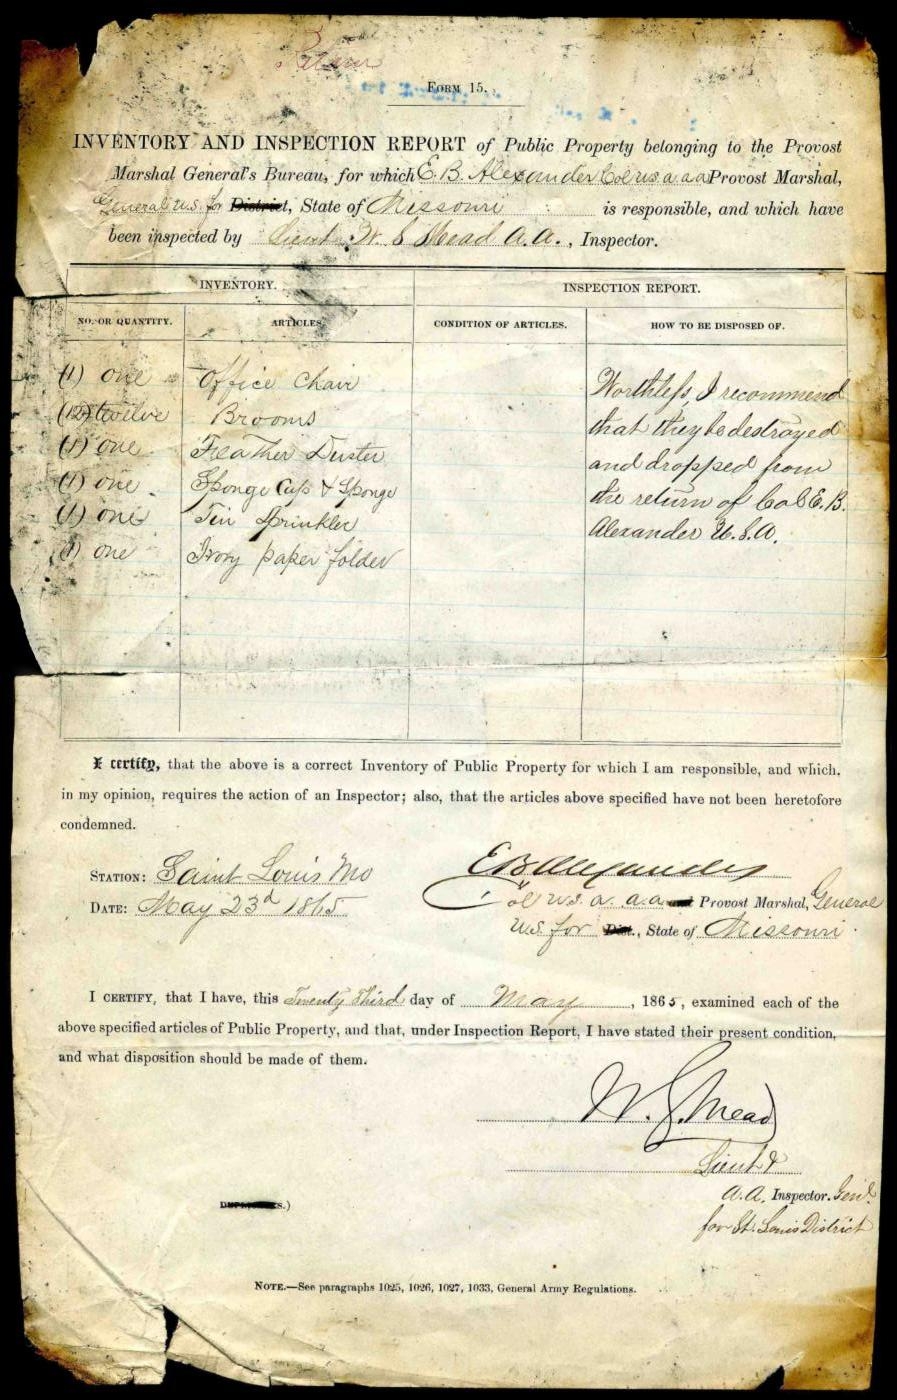 Form 15.
INVENTORY AND INSPECTION REPORT of Public Property belonging to the Provost
Marshal General's Bureau, for which E. B. Alexander Col U.S.a. a a Provost Marshal,
General U.S. for District, State of Missouri is responsible, and which have
been inspected by Lieut W. S Mead A.A., Inspector.
INVENTORY. INSPECTION REPORT.
NO. OR QUANTITY. ARTICLES. CONDITION OF ARTICLES. HOW TO BE DISPOSED OF.
(1) one Office Chair Worthless, I recommend
(12) twelve Brooms that they be destroyed
(1) one Feather Duster and dropped from
(1) one Sponge Cup & Sponge the return of Col E. B.
(1) one Tin Sprinkler Alexander U.S.A.
(1) one Ivory paper folder
I certify, that the above is a correct Inventory of Public Property for which I am responsible, and which,
in my opinion, requires the action of an Inspector; also, that the articles above specified have not been heretofore
condemned.
STATION: Saint Louis Mo
E B Alexander
DATE: May 23d 1865
Col U.S. a. a.a Provost Marshal, General
U.S. for Dist., State of Missouri.
I CERTIFY, that I have, this Twenty Third day of May, 1865, examined each of the
above specified articles of Public Property, and that, under Inspection Report, I have stated their present condition,
and what disposition should be made of them.
W. S. Mead
Lieut &
A.A. Inspector. Genl.
for St. Louis District
NOTE.—See paragraphs 1025, 1026, 1027, 1033, General Army Regulations.